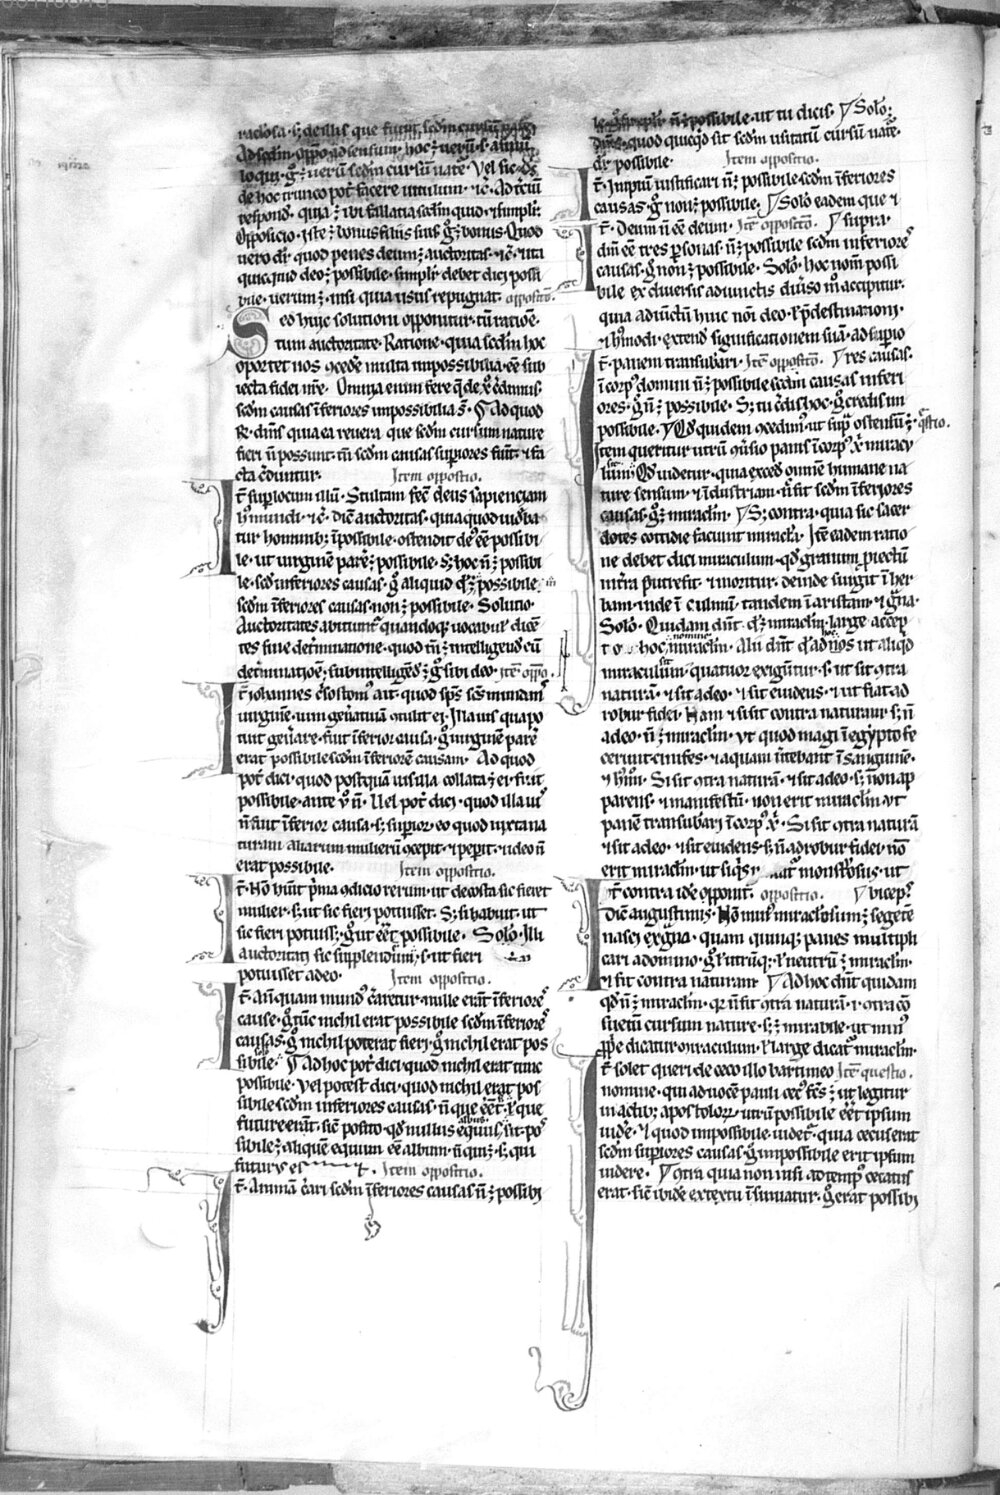 raclosa · sꝫ de illis que fiunt scd̄m cursū nat̄e
Ad scd̄m opp̄o ad sensum · hoc ꝫ ueꝝ · s · animū
loqui · g° ꝫ ueꝝ scd̄m cursū nat̄e · Vel sic · d̄s
de hoc trunco pot̄ facere uitulum · ⁊c̄ · Ad t̄ciū
respond̄ · quia ꝫ ibi fallatia scd̄m quid · ⁊ simpl̄r ·
Opposicio · iste ꝫ bonus
uero dr̄ · quod penes deum ꝫ auctoritas · ⁊c̄ · ita
quicquid deo ꝫ possibile · simpl̄r debet dici possi
bile · uerum ꝫ · nisi quia usus repugnat · oppositō ·
Sed huic solutioni opponitur · tū ratiōe ·
tum auctoritate · Ratione · quia scd̄m hoc
oportet nos ↄcedē multa impossibilia ēe sub
iecta fidei nr̄e · Omnia enim fere q̄ de xp̄o c̄dimus ·
scd̄m causas īferiores impossibilia s̄t · ¶ Ad quod
R · dn̄s quia ea reuera que scd̄m cursum nature
fieri n̄ possunt · tn̄ scd̄m causas sup̄iores fiūt · ⁊ fa
cta c̄duntur · Item oppositio ·
It̄ · sup̄ locum illū · Stultam fec̄ deus sapienciam
hꝰ mundi · ⁊c̄ · Dic̄ auctoritas · quia quod uideba
tur hominibꝫ īpossibile · ostendit deꝰ ēe possibi
le · ut uirginē par̄e ꝫ possibile · Sꝫ hoc n̄ ꝫ possibi
le · scd̄m inferiores causas · g° aliquid ꝫ possibile
scd̄m īferiores causas · non ꝫ possibile · Solutio ·
Auctoritates abutunt̄ quandoqꝫ uocabul̄ dicē
tes sine det̄minatione · quod tn̄ ꝫ intelligend̄ cū
det̄minatiōe · subintelligēd̄ ꝫ g° sibi deo · Itē oppō ·
It̄ iohannes c̄sostomꝰ ait · quod sp̄s sc̄s mundauit
uirginē · uim gen̄atiuā ↄtulit ei · Illa uis qua po
tuit gen̄are · fuit īferior causa · g° uirginē par̄e
erat possibile scd̄m īferiorē causam · Ad quod
pot̄ dici · quod postquā uis illa collata ꝫ ei · fuit
possibile · ante ū n̄ · Uel pot̄ dici · quod illa uis
n̄ fuit īferior causa · sꝫ sup̄ior · eo quod iuxta na
turam aliarum mulierū ↄcepit · ⁊ pep̄it · ideo n̄
erat possibile · Item oppositio ·
It̄ · Hoc hūit p̄ma ↄdicio rerum · ut de costa sic fieret
mulier · sꝫ ut sic fieri potuisset · Sꝫ si habuit · ut
sic fieri potuissꝫ · g° ut ēēt possibile · Solō · Illi
auctoritati sic supplendū · s · ut fieri
potuisset a deo · Item oppositio ·
It̄ · Anq̄uam mundꝰ c̄aretur · nulle erāt īferiorēs
cause · g° tūc nichil erat possibile scd̄m īferiorēs
causas · g° nichil poterat fieri · g° nichil erat pos
sibile · ¶ Ad hoc pot̄ dici · quod nichil erat tunc
possibile · Vel potest dici · quod nichil erat pos
sibile scd̄m inferiores causas · n̄ que ēēt · ł que
future erāt · sic̄ posito · qd̄ nullus equus sit · pos
sibile ꝫ · aliquē equum ēē album ·
futurꝰ est · Item oppositio ·
It̄ · Animā c̄ari scd̄m īferiores causas n̄ ꝫ possibi
le · g° simpl̄r n̄ ꝫ possibile · ut tu dicis · ¶ Solō ·
Dīm̄s · quod quicqd̄ sit scd̄m usitatū cursū nat̄e ·
dr̄ possibile · Item oppositio ·
It̄ · Impiū iustificari n̄ ꝫ possibile scd̄m īferiores
causas · g° non ꝫ possibile · ¶ Solō eadem que ⁊
It̄ · Deum n̄ ēē deum · Itē oppositō · ¶ supra ·
dūm ēē tres p̄sonas · n̄ ꝫ possibile scd̄m inferiores
causas · g° non ꝫ possibile · Solō · hoc nom̄ possi
bile ex diuersis adiunctis diūso m̄ accipitur ·
quia adiūctū huic nōi deo · ł p̄destinationi ·
⁊ hꝰmodi · extend̄ significationem suā · ad sup̄io
It̄ · panem transubar̄i · Itē oppositō · ¶ res causas ·
ī corpꝰ domini n̄ ꝫ possibile scd̄m causas inferi
ores · g° n̄ ꝫ possibile · Sꝫ tu c̄dis hoc · g° credis im
possibile · ¶ Qd̄ quidem ↄcedimꝰ ut sup̄ ostensū ꝫ · q̄stio ·
Item queritur utrū ↄu̓sio panis ī corpꝰ xp̄i miracu
lum sit · Qd̄ uidetur · quia exced̄ omnē humane na
ture sensum · ⁊ īdustriam · n̄ fit scd̄m īferiores
causas · g° ꝫ miraclm̄ · ¶ Sꝫ contra · quia sic sacer
dotes cottidie faciunt miracl̄a · Itē eadem ratio
ne debet dici miraculum · qd̄ granum p̄iectū
in t̄ra putrefit · ⁊ moritur · deinde surgit ī her
bam · inde ī culmū · tandem ī aristam · ⁊ g̓na ·
Solō · Quidam dn̄t qd̄ ꝫ miraclm̄ · large accep
to hoc nomine miraclm̄ · Alii dn̄t qd̄ ad hoc ut aliqd̄ sit
miraculum · quatuor exigūtur · s · ut sit ↄtra
naturā · ⁊ sit a deo · ⁊ sit euidens · ⁊ ut fiat ad
robur fidei · Nam ⁊ si sit contra naturam · sꝫ n̄
a deo · n̄ ꝫ miraclm̄ · ut quod magi ī egypto fe
cerunt cinifes · ⁊ aquam u̓tebant ī sanguinē ·
⁊ hꝰmōi · Si sit ↄtra naturā · ⁊ sit a deo · sꝫ non ap
parens · ⁊ manifestū · non erit miraclm̄ · ut
panē transubar̄i ī corpꝰ xp̄i · Si sit ↄtra naturā
⁊ sit a deo · ⁊ sit euidens · sꝫ n̄ ad robur fidei · nō
erit miraclm̄ · ut si q̄s monst̓osus · ut
It̄ contra id ē opponit̄ · oppositio · ¶ biceps ·
Dic̄ augustinus · Nō minꝰ miraclosum ꝫ segetē
nasci ex g̓na · quam quinqꝫ panes multipli
cari a domino · g° ł utrūqꝫ · ł neutrū ꝫ miraclm̄ ·
⁊ fit contra naturam · ¶ Ad hoc dn̄t quidam
qd̄ n̄ ꝫ miraclm̄ · qꝛ n̄ fit ↄtra naturā · ⁊ ↄtra cō
suetū cursum nature · sꝫ ꝫ mirabile · ut minꝰ
p̄p̄e dicatur miraculum · ł large dicat̄ miraclm̄ ·
It̄ solet queri de ceco illo bartimeo · Itē questio ·
nomine · qui ad uocē pauli cecꝰ fcs̄ ꝫ ut legitur
in actibꝫ apostoloꝝ · utrū possibile ēēt ipsum
uidē · ⁊ quod impossibile uidet̄ · quia cecus erat
scd̄m sup̄iores causas · g° impossibile erit ipsum
uidere · ¶ ↄtra quia non nisi ad tempꝰ cecatus
erat · sic̄ ibidē ex textu īsinuatur · g° erat possibi